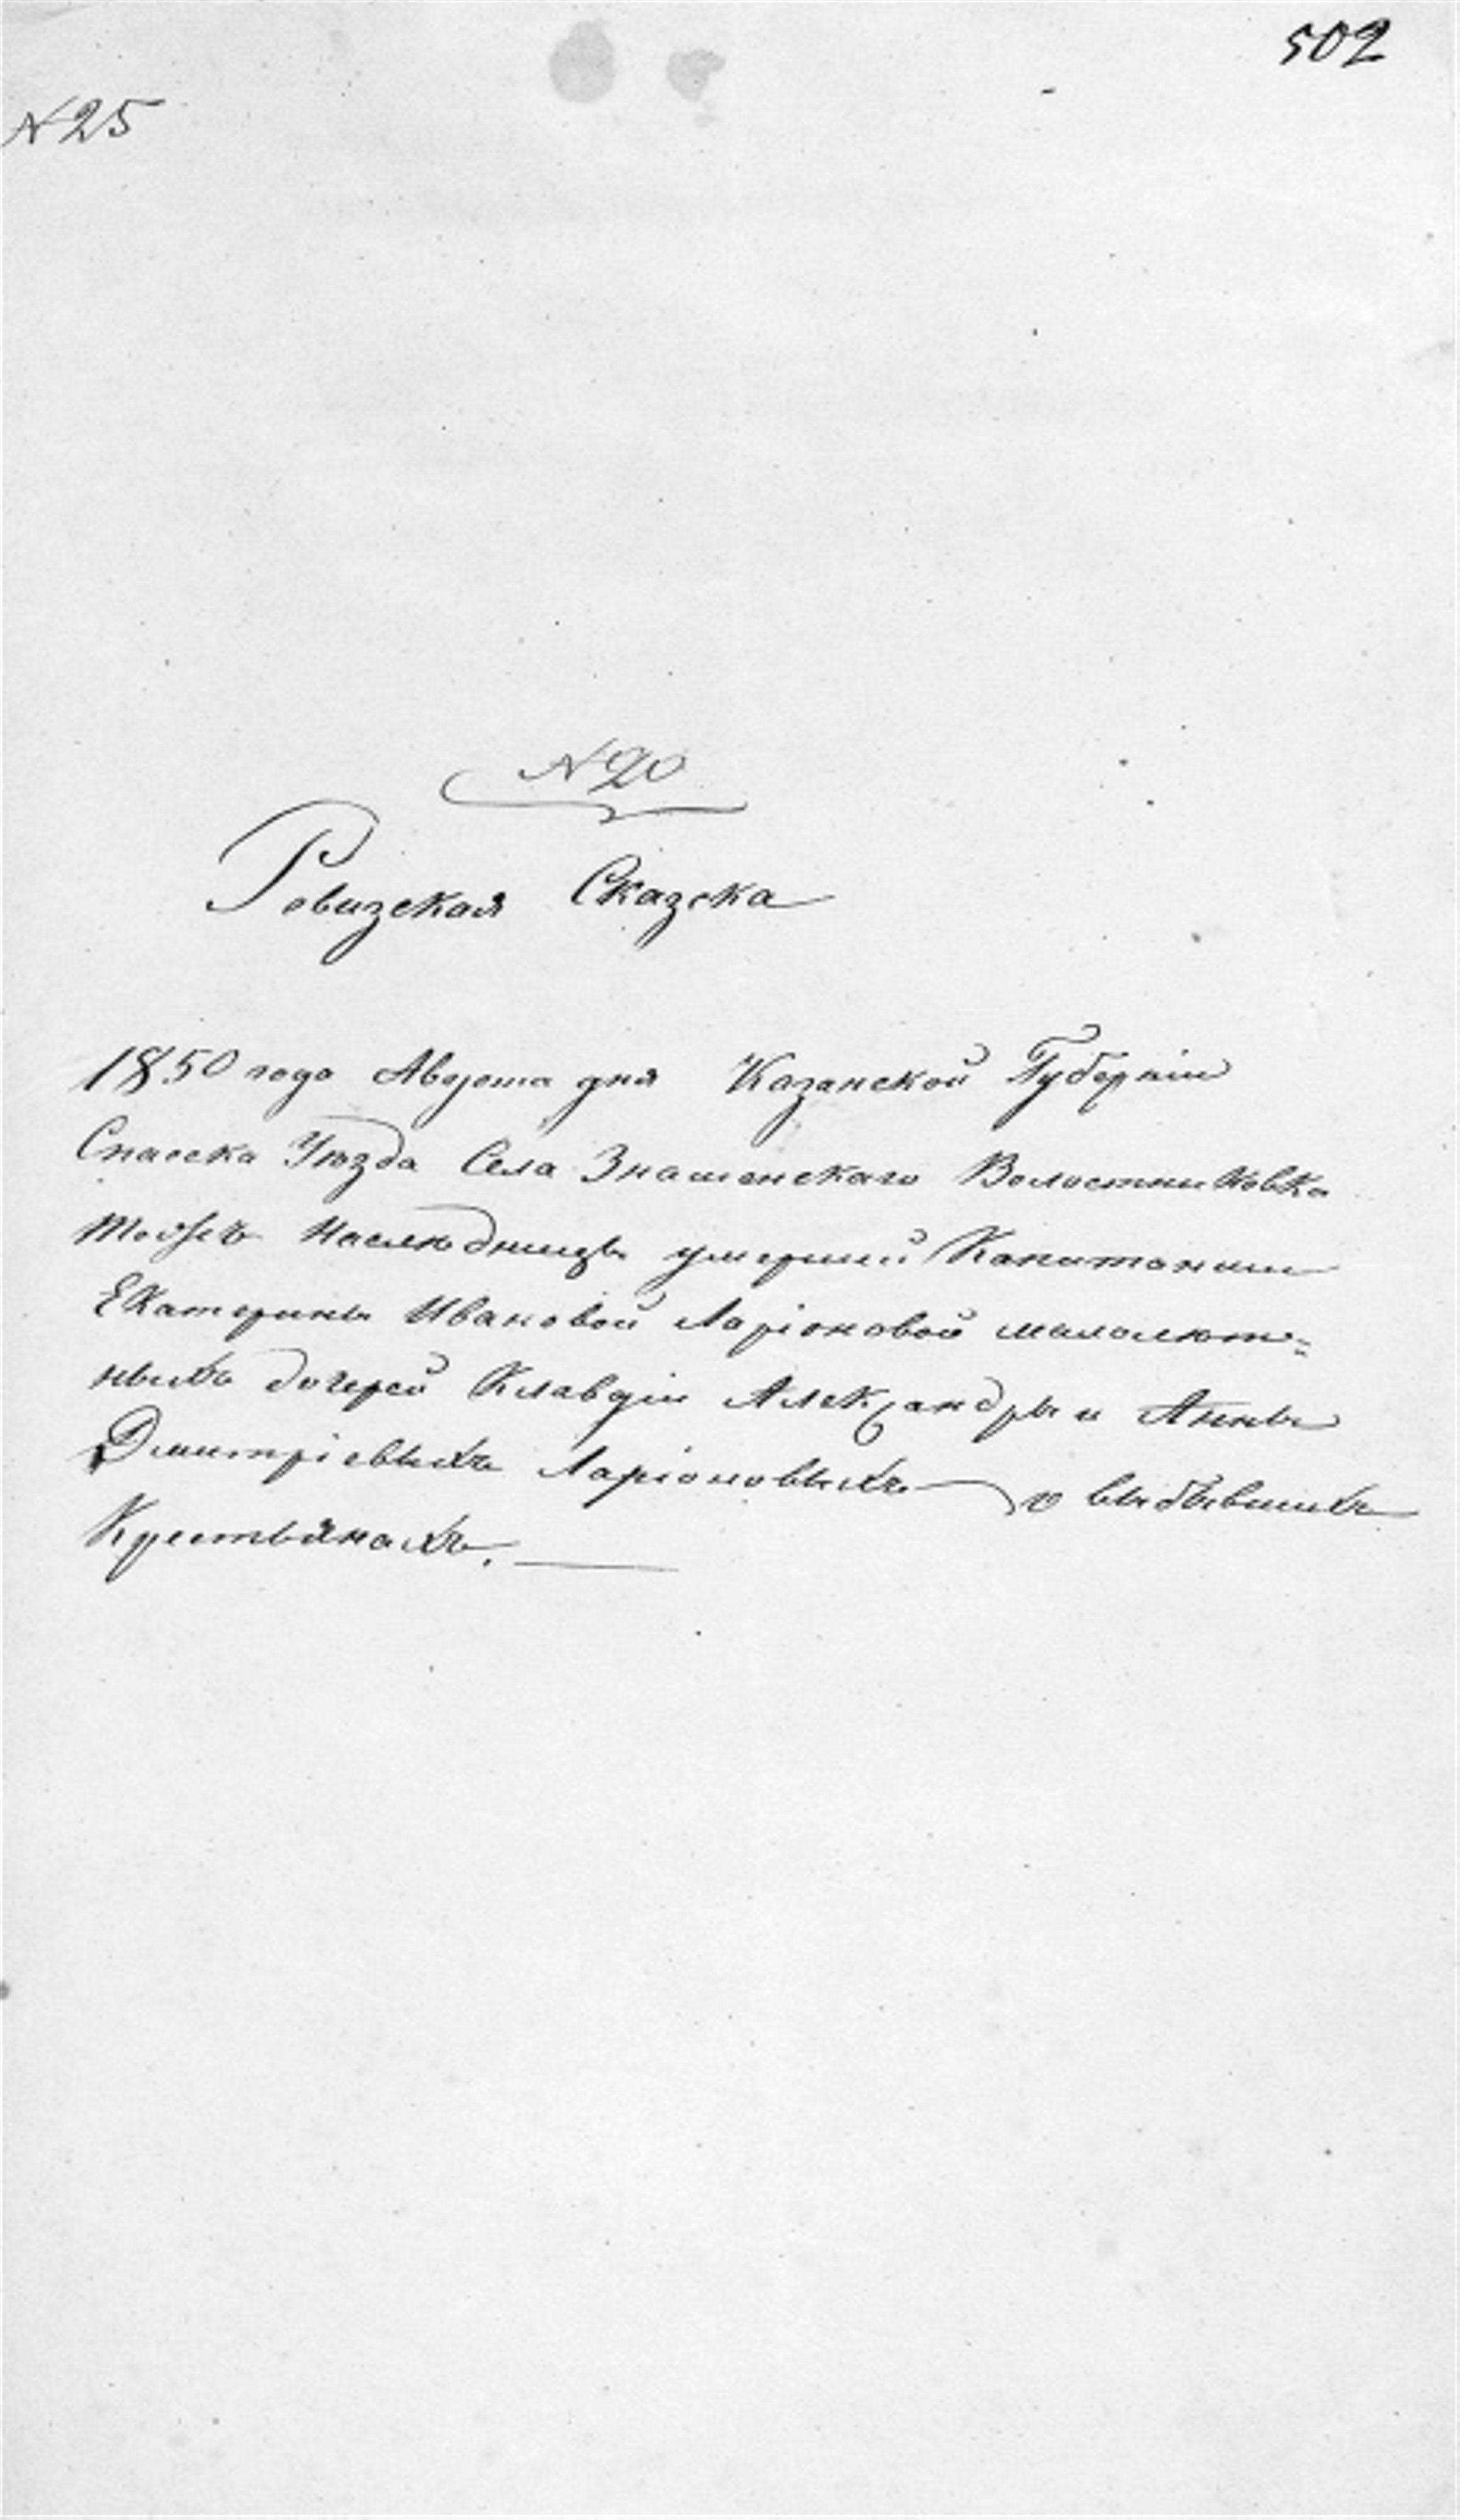 502
N 25
N 20
Ревизская Сказка
1850 года Августа дня Казанской Губерніи
Спаска Уѣзда Села Знаменскаго Волостниковка
тожъ Наслѣдницъ умершей Капитанши
Екатерины Ивановой Ларіоновой малолѣт=
ныхъ дочерей Клавдіи Александры и Анны
Дмитріевыхъ Ларіоновыхъ о выбывшихъ
Крестьянахъ.